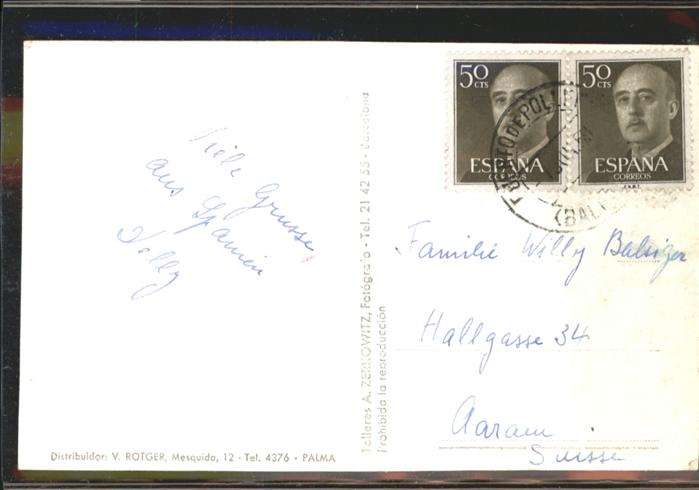 Viele Grüsse
aus Spanien
Willy
50 CTS
ESPAÑA
CORREOS
50 CTS
ESPAÑA
CORREOS
PUERTO DE POLLE
(BAL
Talleres A. ZERKOWITZ, Fotógrafo - Tel. 21 42 55 - Barcelona
Prohibida la reproducción
Familie Willy Balsiger
Hallgasse 34
Aarau
Suisse
Distribuidor: V. ROTGER, Mesquida, 12 - Tel. 4376 • PALMA